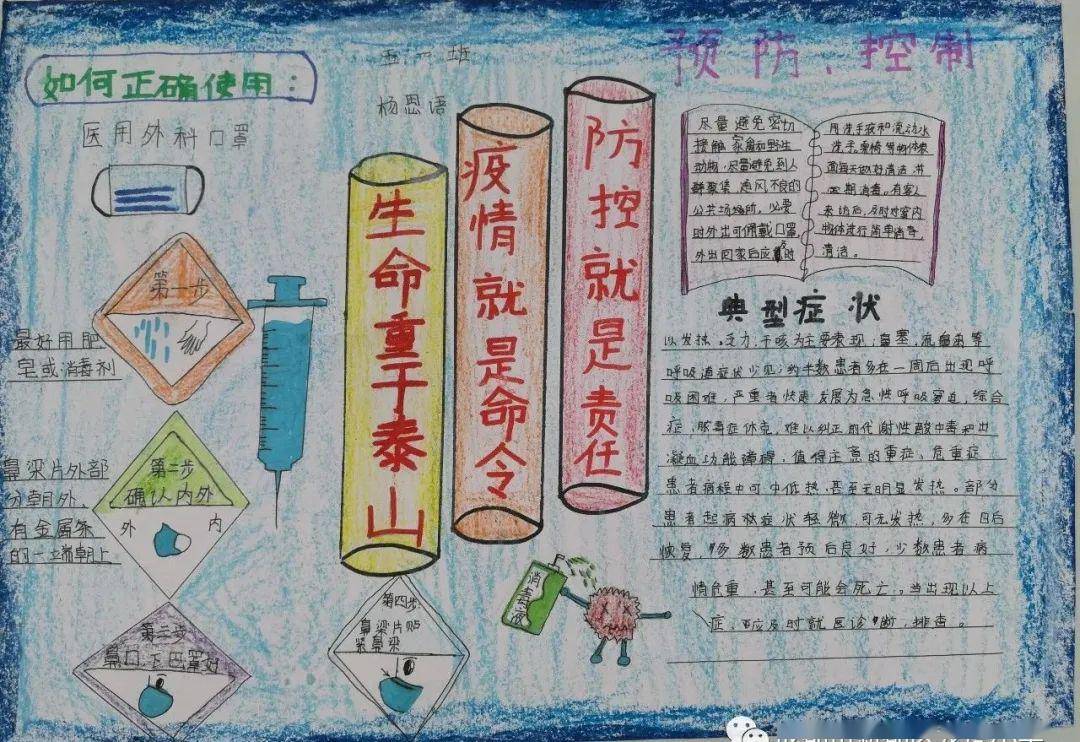 如何正确使用：
医用外科口罩
第一步
最好用肥
皂或消毒剂
第二步
确认内外
外 内
鼻梁片外部
分朝外，
有金属条
的一端朝上
第三步
鼻口下巴罩好
第四步：
鼻梁片贴
紧鼻梁
五六班
杨思语
生命重于泰山
疫情就是命令
防控就是责任
消毒液
预防、控制
尽量避免密切
接触家禽和野生
动物，尽量避免到人
群聚集通风不良的
公共场场所，必要
时外出可佩戴口罩，
外出回家后应 时
用洗手液和流动水
洗手。桌椅等物体表
面每天做好清洁，书
定期消毒。有客人
来访后，及时对室内
物体进行简单消毒，
清洁。
典型症状
以发热、乏力、干咳为主要表现；鼻塞、流 等
呼吸道症状少见；约半数患者多在一周后出现呼
吸困难，严重者快速发展为急性呼吸窘迫，综合
症，脓毒症休克，难以纠正的代谢性酸中毒和出
凝血功能障碍。值得注意的重症、危重症
患者病程中可中低热，甚至无明显发热。部分
患者起病 症状轻微，可无发热，多在 日后
恢复，多数患者预后良好，少数患者病
情危重，甚至可能会死亡。当出现以上
症， 应及时就医诊断，排查。